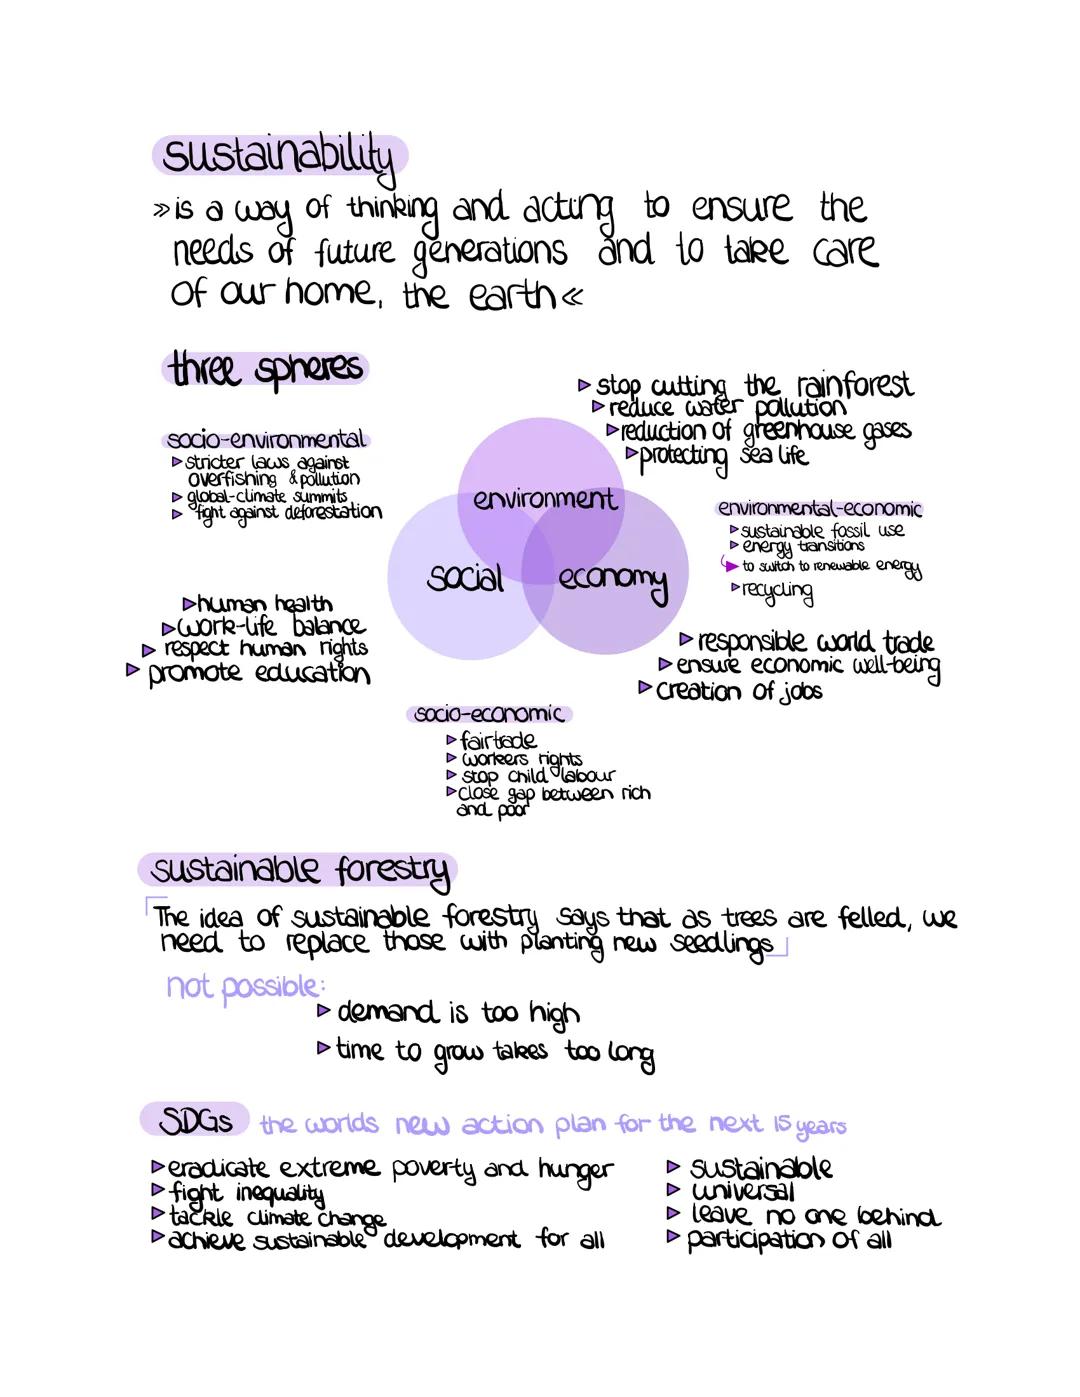 sustainability
»is a way of thinking and acting to ensure the
needs of future generations and to take care
of our home, the earth«
three spheres
▶ stop cutting the rainforest
▶ reduce water pollution
▶ reduction of greenhouse gases
▶ protecting sea life
socio-environmental
▶ stricter laws against
overfishing & pollution
▶ global-climate summits
▶ fight against deforestation
environment
social
economy
environmental-economic
▶ sustainable fossil use
▶ energy transitions
to switch to renewable energy
▶ recycling
▶ human health
▶ work-life balance
▶ respect human rights
▶ promote education
▶ responsible world trade
▶ ensure economic well-being
▶ creation of jobs
socio-economic
▶ fairtrade
▶ workers rights
▶ stop child labour
▶ close gap between rich
and poor
sustainable forestry
The idea of sustainable forestry says that as trees are felled, we
need to replace those with planting new seedlings
not possible:
▶ demand is too high
▶ time to grow takes too long
SDGs the worlds new action plan for the next 15 years
▶ eradicate extreme poverty and hunger
▶ fight inequality
▶ tackle climate change
▶ achieve sustainable development for all
▶ sustainable
▶ universal
▶ leave no one behind
▶ participation of all